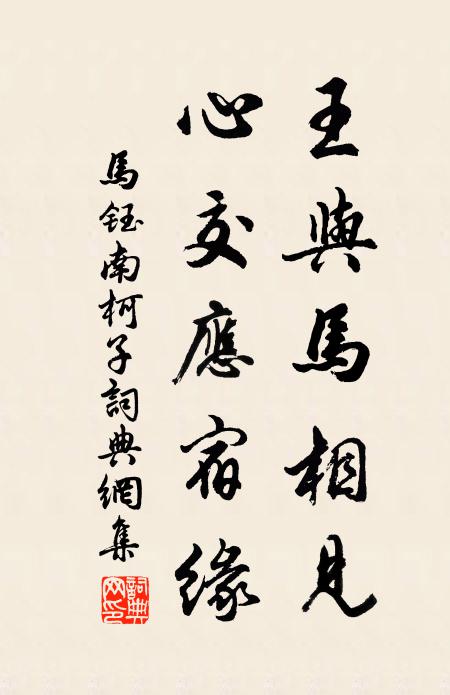 王與馬相見
心交應宿緣
馬鈺南柯子詞典網集
詞典网印